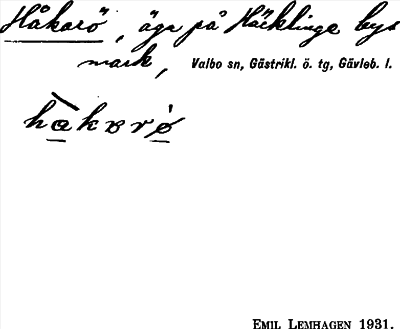 Håkarö, äga på Häcklinge bys
mark, Valbo sn, Gästrikl. ö. tg, Gävleb. l.
hakɒrö
EMIL LEMHAGEN 1931.